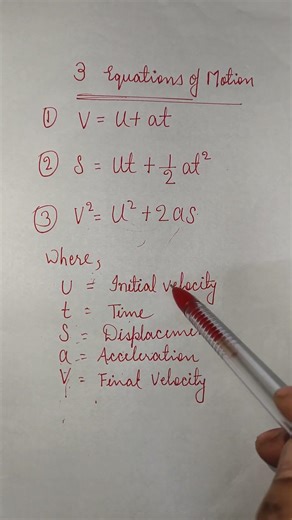 3 Equations of Motion
① V = U + at
② S = Ut + 1/2 at²
③ V² = U² + 2as
Where,
U = Initial velocity
t = Time
S = Displacement
a = Acceleration
V = Final Velocity